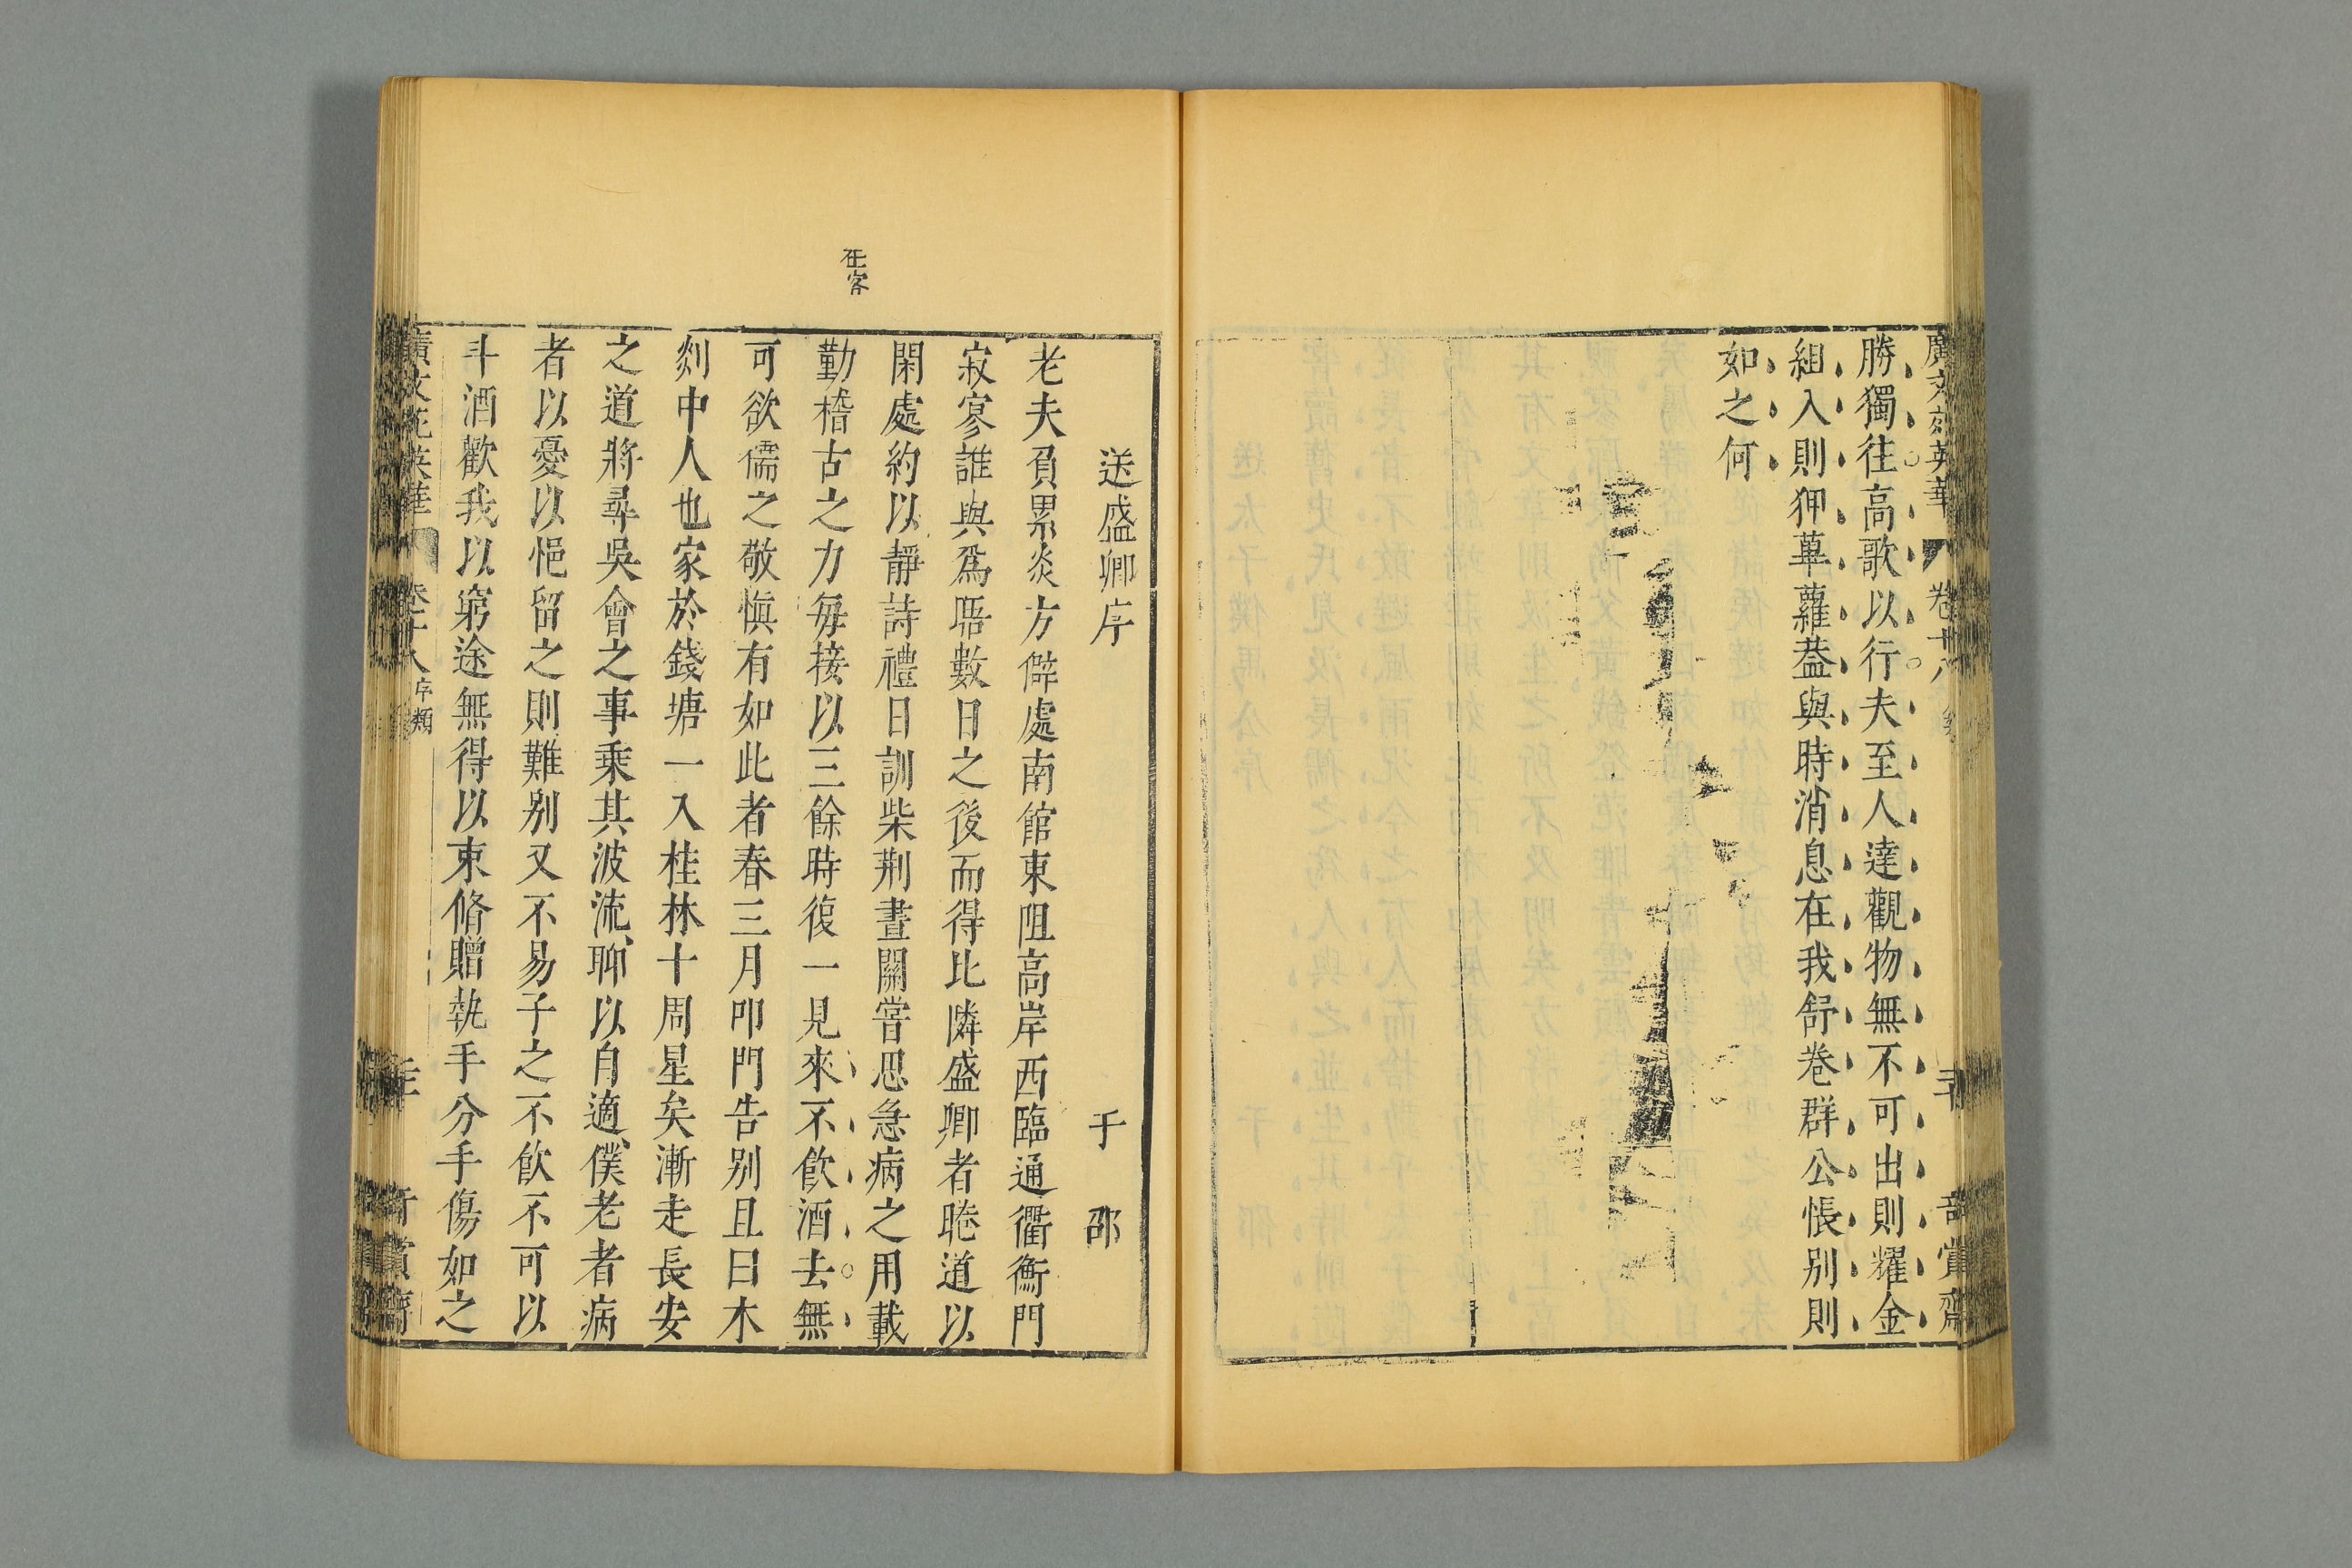 廣文苑英華 卷十八
勝獨往高歌以行夫至人達觀物無不可出則耀金
組入則狎蓽蘿葢與時消息在我舒卷群公悵別則
如之何
送盛卿序 于邵
老夫負累炎方僻處南館東阻高岸西臨通衢衡門
寂寥誰與爲晤數日之後而得比隣盛卿者聴道以
閑處約以靜詩禮日訓柴荆晝關嘗思急病之用載
勤稽古之力每接以三餘時復一見來不飲酒去無
可欲儒之敬慎有如此者春三月叩門告别且曰木
剡中人也家於錢塘一入桂林十周星矣漸走長安
之道將尋吳會之事乗其波流聊以自適僕老者病
者以憂以悒留之則難别又不易子之不飲不可以
斗酒歡我以窮途無得以束脩贈執手分手傷如之
廣文苑英華 卷十八 序類